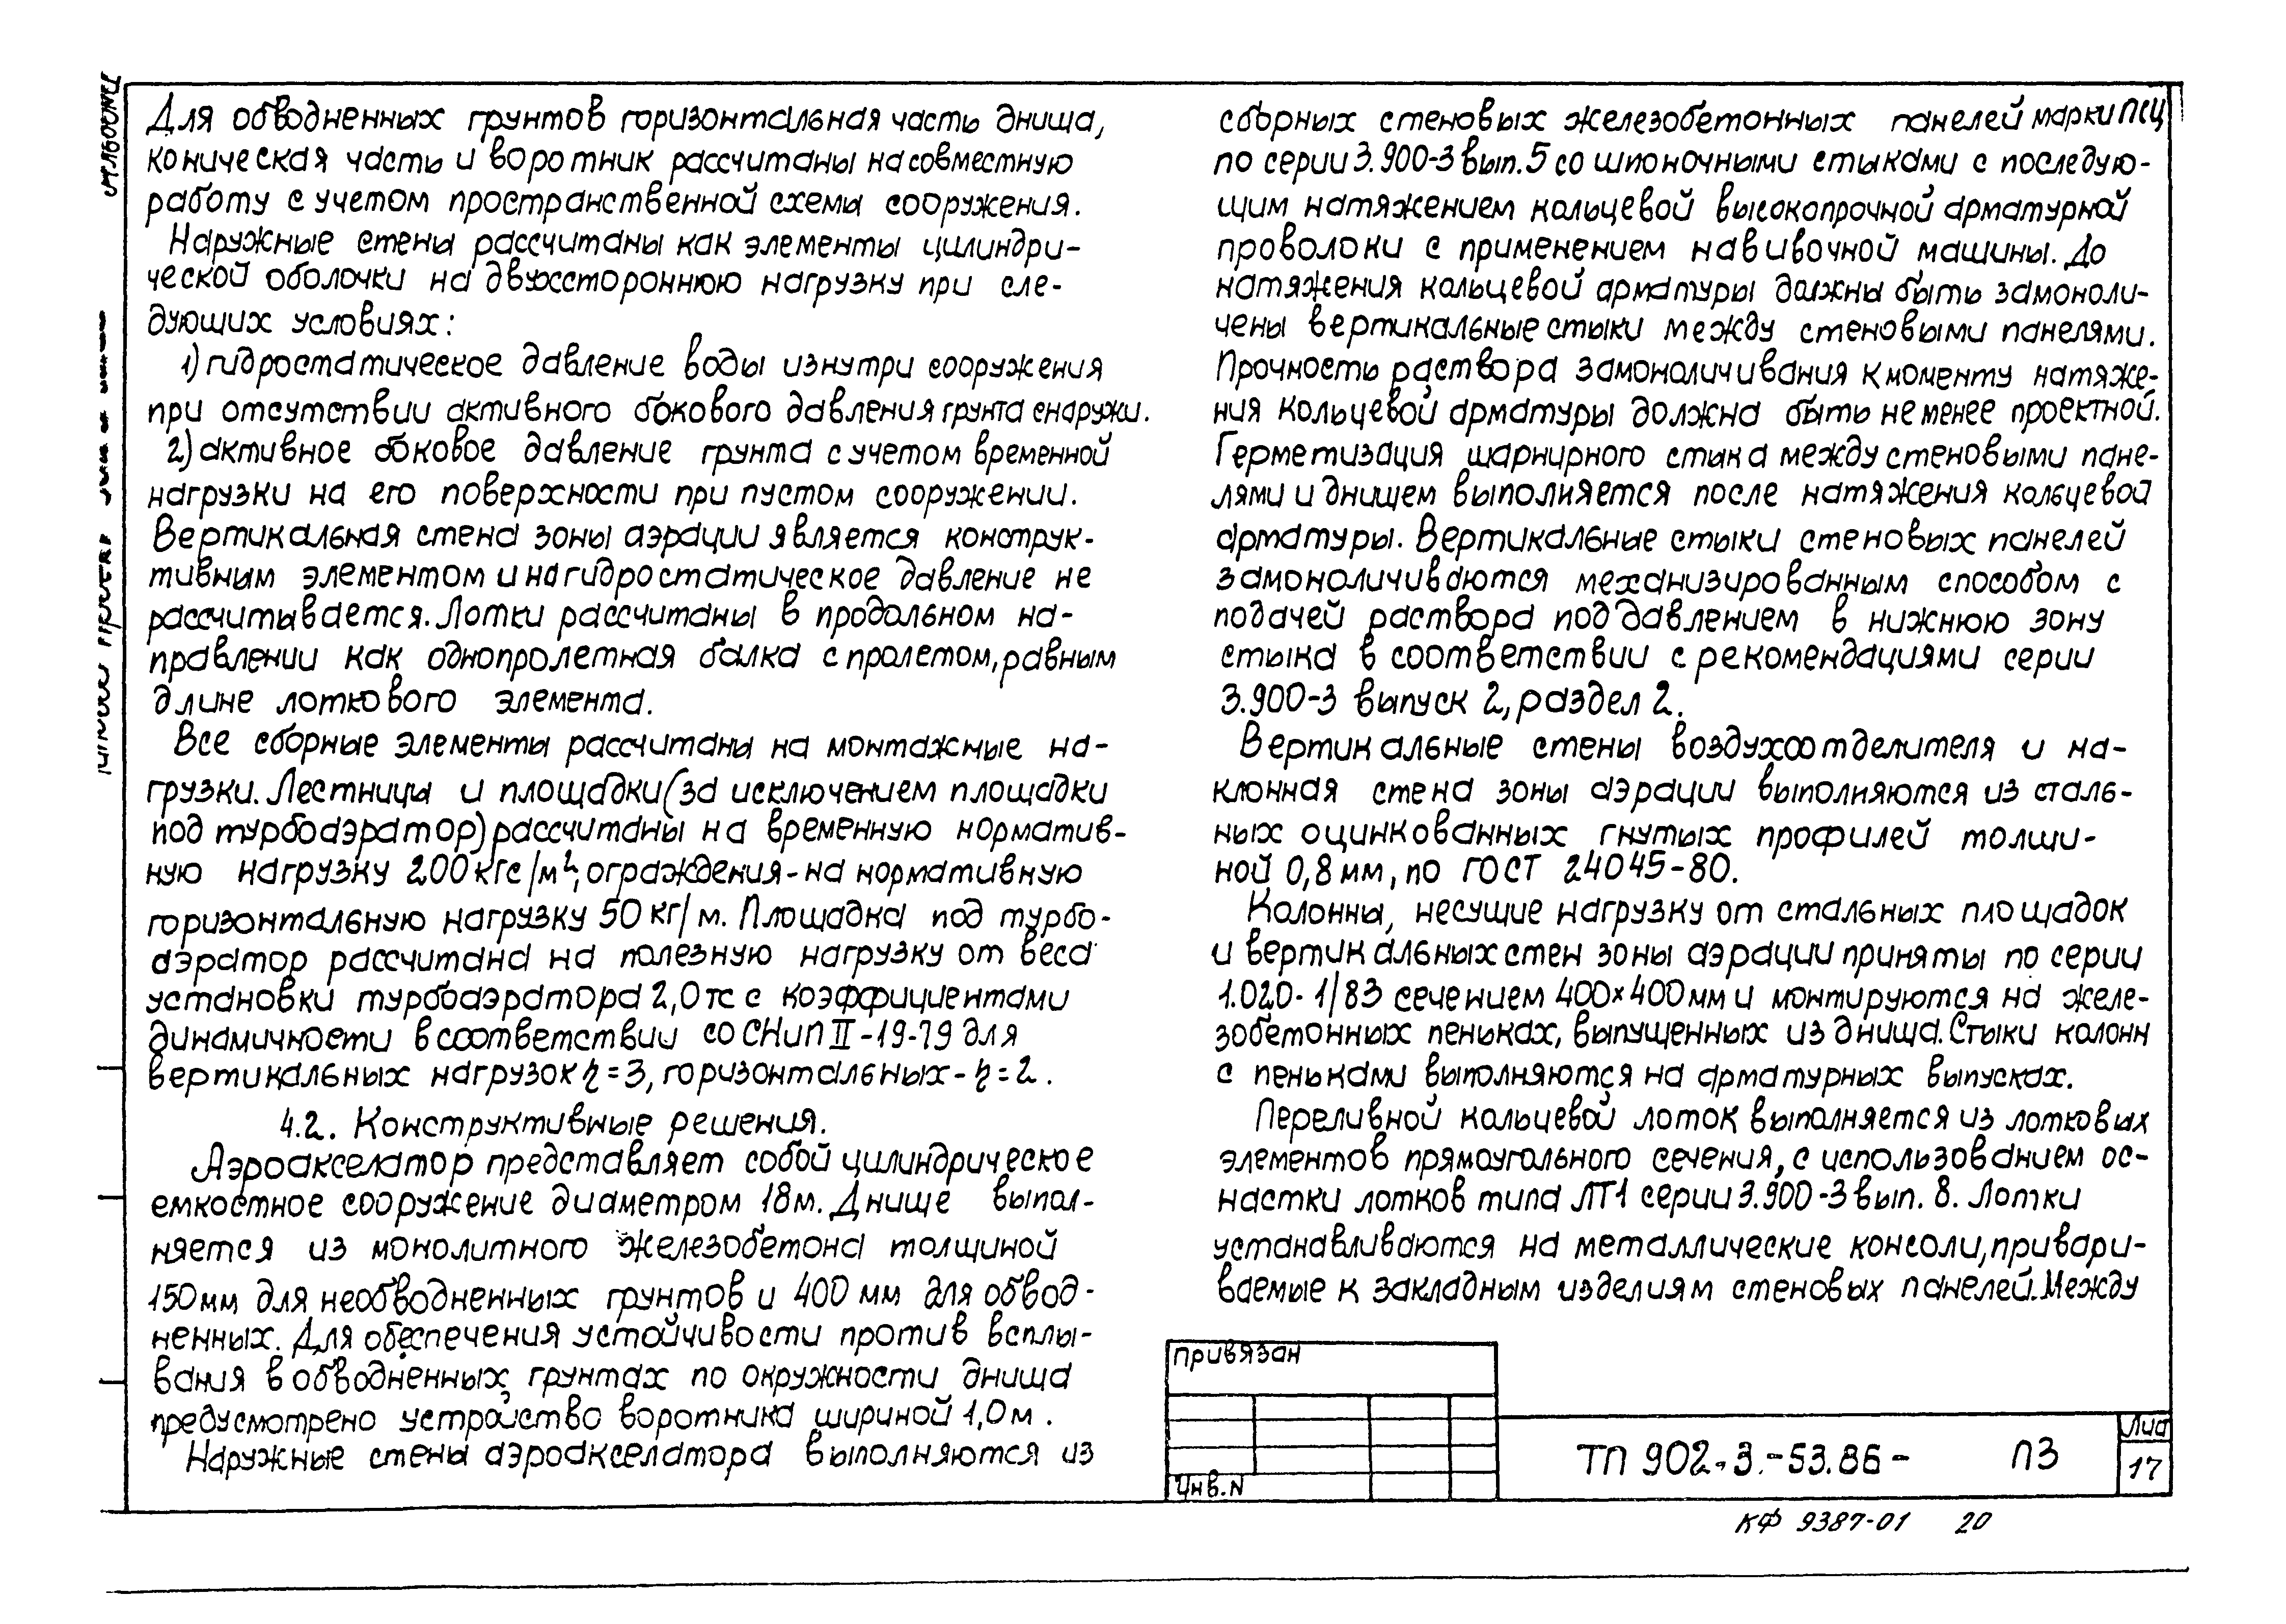 Для обводненных грунтов горизонтальная часть днища,
коническая часть и воротник рассчитаны на совместную
работу с учетом пространственной схемы сооружения.
Наружные стены рассчитаны как элементы цилиндри-
ческой оболочки на двухстороннюю нагрузку при сле-
дующих условиях:
1) гидростатическое давление воды изнутри сооружения
при отсутствии активного бокового давления грунта снаружи.
2) активное боковое давление грунта с учетом временной
нагрузки на его поверхности при пустом сооружении.
Вертикальная стена зоны аэрации является конструк-
тивным элементом и на гидростатическое давление не
рассчитывается. Лотки рассчитаны в продольном на-
правлении как однопролетная балка с пролетом, равным
длине лоткового элемента.
Все сборные элементы рассчитаны на монтажные на-
грузки. Лестницы и площадки (за исключением площадки
под турбоаэратор) рассчитаны на временную норматив-
ную нагрузку 200 кгс/м², ограждения - на нормативную
горизонтальную нагрузку 50 кг/м. Площадка под турбо-
аэратор рассчитана на полезную нагрузку от веса
установки турбоаэратора 2,0 тс с коэффициентами
динамичности в соответствии со СНиП II-19-79 для
вертикальных нагрузок η=3, горизонтальных - η=2.
4.2. Конструктивные решения.
Аэроакселатор представляет собой цилиндрическое
емкостное сооружение диаметром 18м. Днище выпол-
няется из монолитного железобетона толщиной
150мм для необводненных грунтов и 400 мм для обвод-
ненных. Для обеспечения устойчивости против всплы-
вания в обводненных грунтах по окружности днища
предусмотрено устройство воротника шириной 1,0м.
Наружные стены аэроакселатора выполняются из
сборных стеновых железобетонных панелей марки ПСЦ
по серии 3.900-3 вып.5 со шпоночными стыками с последую-
щим натяжением кольцевой высокопрочной арматурной
проволоки с применением навивочной машины. До
натяжения кольцевой арматуры должны быть замоноли-
чены вертикальные стыки между стеновыми панелями.
Прочность раствора замоноличивания к моменту натяже-
ния кольцевой арматуры должна быть не менее проектной.
Герметизация шарнирного стыка между стеновыми пане-
лями и днищем выполняется после натяжения кольцевой
арматуры. Вертикальные стыки стеновых панелей
замоноличиваются механизированным способом с
подачей раствора под давлением в нижнюю зону
стыка в соответствии с рекомендациями серии
3.900-3 выпуск 2, раздел 2.
Вертикальные стены воздухоотделителя и на-
клонная стена зоны аэрации выполняются из сталь-
ных оцинкованных гнутых профилей толщи-
ной 0,8 мм, по ГОСТ 24045-80.
Колонны, несущие нагрузку от стальных площадок
и вертикальных стен зоны аэрации приняты по серии
1.020-1/83 сечением 400×400мм и монтируются на желе-
зобетонных пеньках, выпущенных из днища. Стыки колонн
с пеньками выполняются на арматурных выпусках.
Переливной кольцевой лоток выполняется из лотковых
элементов прямоугольного сечения, с использованием ос-
настки лотков типа ЛТ1 серии 3.900-3 вып. 8. Лотки
устанавливаются на металлические консоли, привари-
ваемые к закладным изделиям стеновых панелей. Между
Привязан
Инв. N
ТП 902-3-53.86- ПЗ
17
КФ 9387-01 20